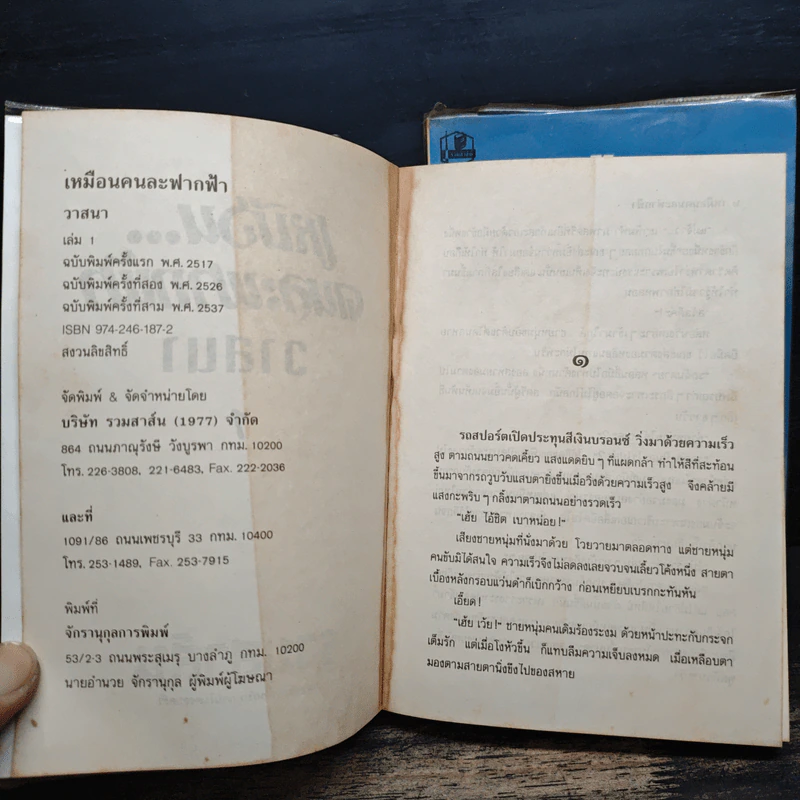 เหมือนคนละฟากฟ้า
วาสนา
เล่ม 1
ฉบับพิมพ์ครั้งแรก พ.ศ. 2517
ฉบับพิมพ์ครั้งที่สอง พ.ศ. 2526
ฉบับพิมพ์ครั้งที่สาม พ.ศ. 2537
ISBN 974-246-187-2
สงวนลิขสิทธิ์
จัดพิมพ์ & จัดจำหน่ายโดย
บริษัท รวมสาส์น (1977) จำกัด
864 ถนนภาณุรังษี วังบูรพา กทม. 10200
โทร. 226-3808, 221-6483, Fax. 222-2036
และที่
1091/86 ถนนเพชรบุรี 33 กทม. 10400
โทร. 253-1489, Fax. 253-7915
พิมพ์ที่
จักรานุกูลการพิมพ์
53/2-3 ถนนพระสุเมรุ บางลำภู กทม. 10200
นายอำนวย จักรานุกุล ผู้พิมพ์ผู้โฆษณา
๑
รถสปอร์ตเปิดประทุนสีเงินบรอนซ์ วิ่งมาด้วยความเร็ว
สูง ตามถนนยาวคดเคี้ยว แสงแดดยิบ ๆ ที่แผดกล้า ทำให้สีที่สะท้อน
ขึ้นมาจากรถวูบวับแสบตายิ่งขึ้นเมื่อวิ่งด้วยความเร็วสูง จึงคล้ายมี
แสงกะพริบ ๆ กลิ้งมาตามถนนอย่างรวดเร็ว
"เฮ้ย ไอ้ชิต เบาหน่อย!"
เสียงชายหนุ่มที่นั่งมาด้วย โวยวายมาตลอดทาง แต่ชายหนุ่ม
คนขับมิได้สนใจ ความเร็วจึงไม่ลดลงเลยจวบจนเลี้ยวโค้งหนึ่ง สายตา
เบื้องหลังกรอบแว่นดำก็เบิกกว้าง ก่อนเหยียบเบรกกะทันหัน
เอี๊ยด!
"เฮ้ย เว้ย!" ชายหนุ่มคนเดิมร้องระงม ด้วยหน้าปะทะกับกระจก
เต็มรัก แต่เมื่อโงหัวขึ้น ก็แทบลืมความเจ็บลงหมด เมื่อเหลือบตา
มองตามสายตานิ่งขึงไปของสหาย